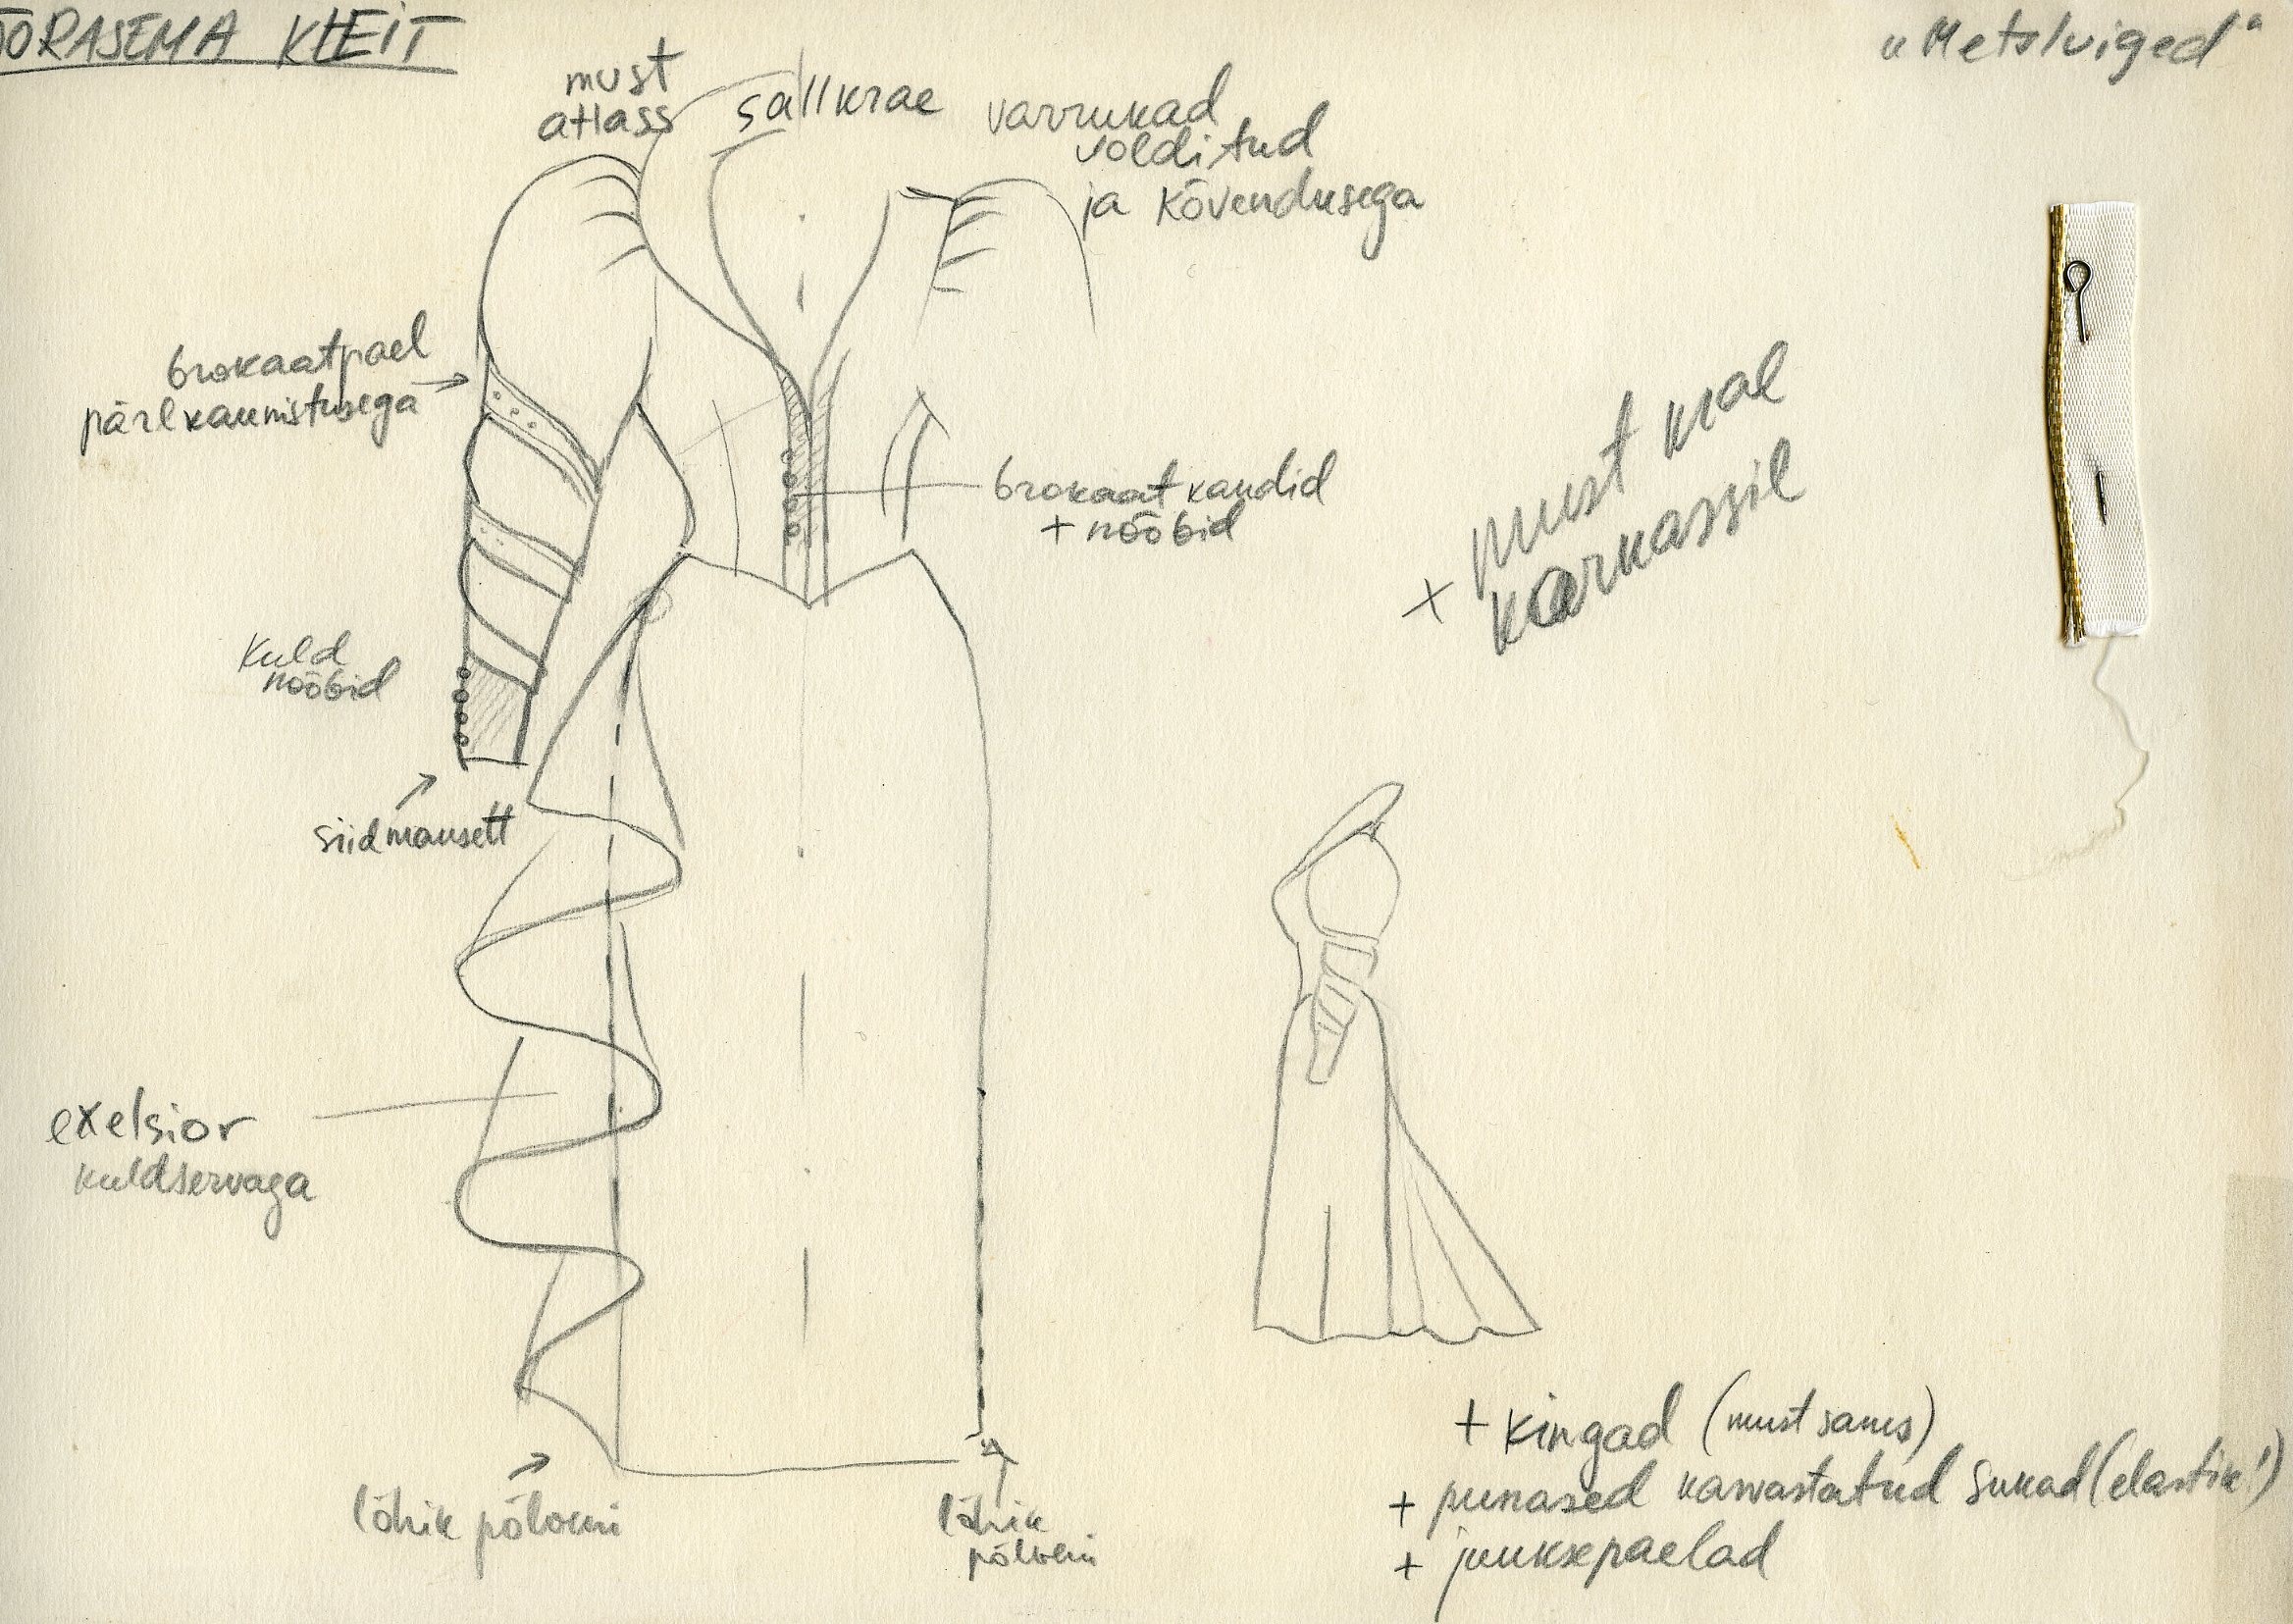 ÕÕRASEMA KLEIT
"Metsluiged"
must
atlass
sallkrae
varrukad
volditud
ja kõvendusega
brokaatpael
pärlkaunistusega
brokaatkandid
+ nööbid
+ must kral
karkassil
Kuld
nööbid
siidmansett
exelsior
kuldservaga
lõhik põlveni
lõhik
põlveni
+ kingad (must
+ punased kawastatud sukad (elastik!)
+ juuksepaelad